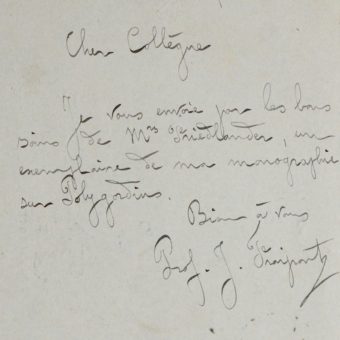 Cher Collègue
Je vous envoie par les bons
soins de Mrs Friedlander, un
exemplaire de ma monographie
sur Polygordius.
Bien à vous
Prof. J. Fraipont